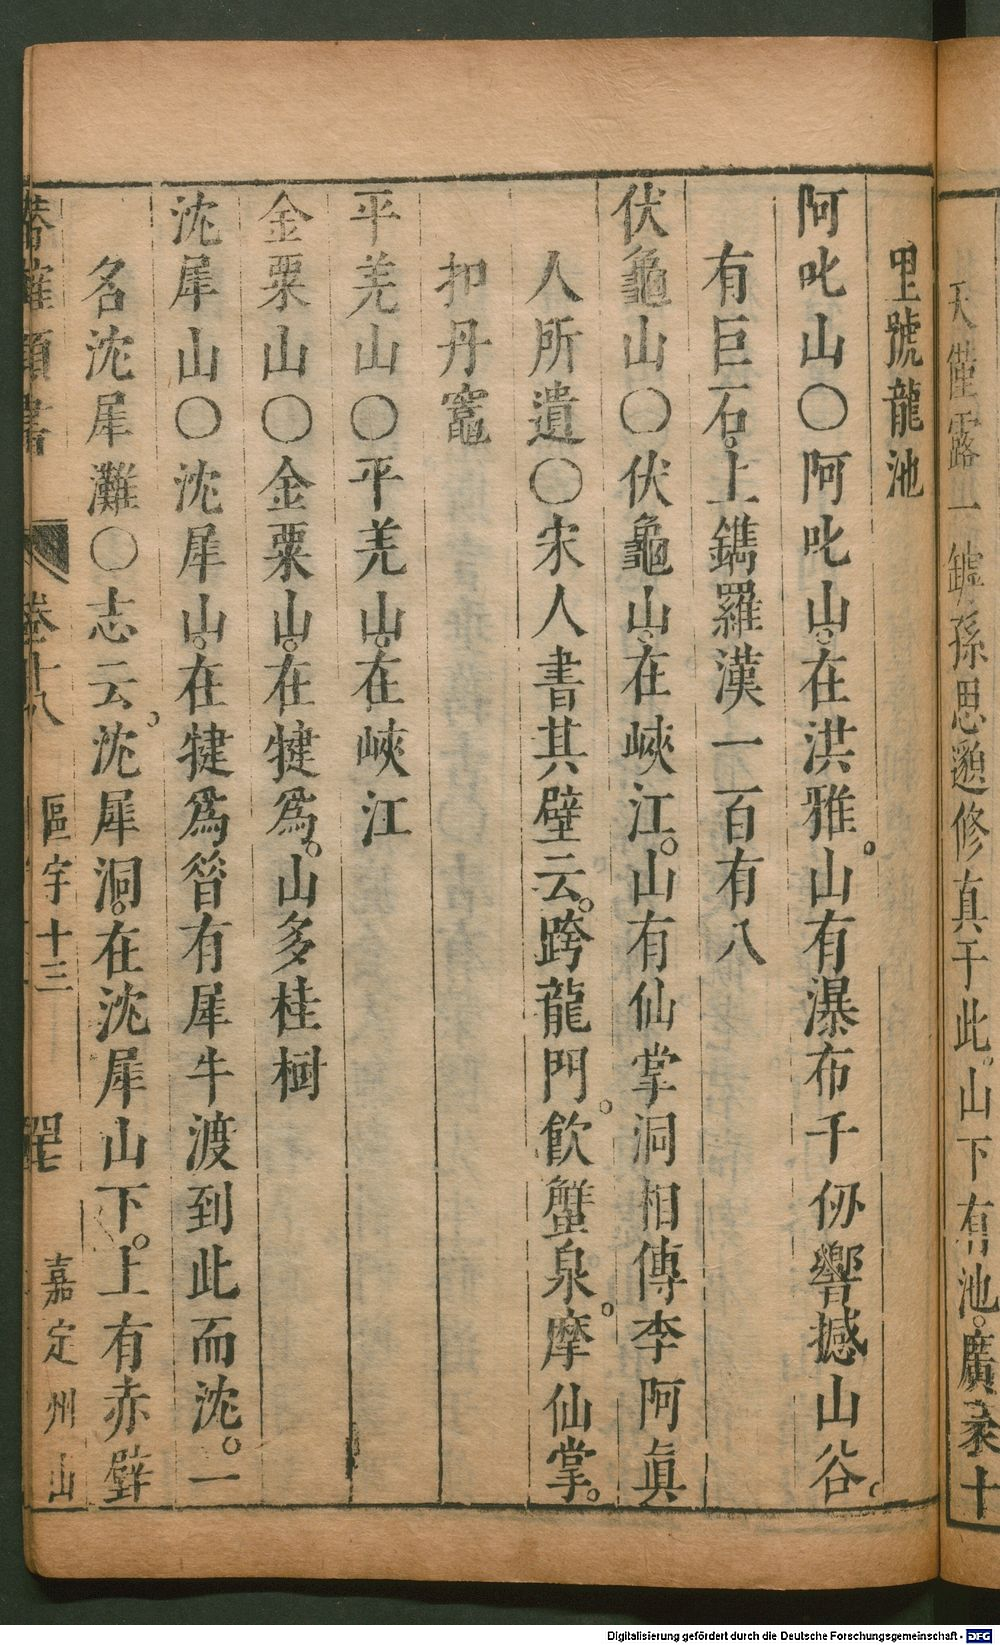 天僅露一罅孫思邈修真于此。山下有池。廣袤十
里號龍池
阿叱山〇阿叱山。在洪雅。山有瀑布千仞響撼山谷。
有巨石。上鐫羅漢一百有八
伏龜山〇伏龜山。在峽江。山有仙掌洞相傳李阿眞
人所遺〇宋人書其壁云。跨龍門。飲蟹泉。摩仙掌。
扣丹竈
平羌山〇平羌山。在峽江
金粟山〇金粟山。在犍爲。山多桂樹
沈犀山〇沈犀山。在犍爲晉有犀牛渡到此而沈。一
名沈犀灘〇志云。沈犀洞。在沈犀山下。上有赤壁
卷十八
區宇十三
嘉定州山
Digitalisierung gefördert durch die Deutsche Forschungsgemeinschaft - DFG